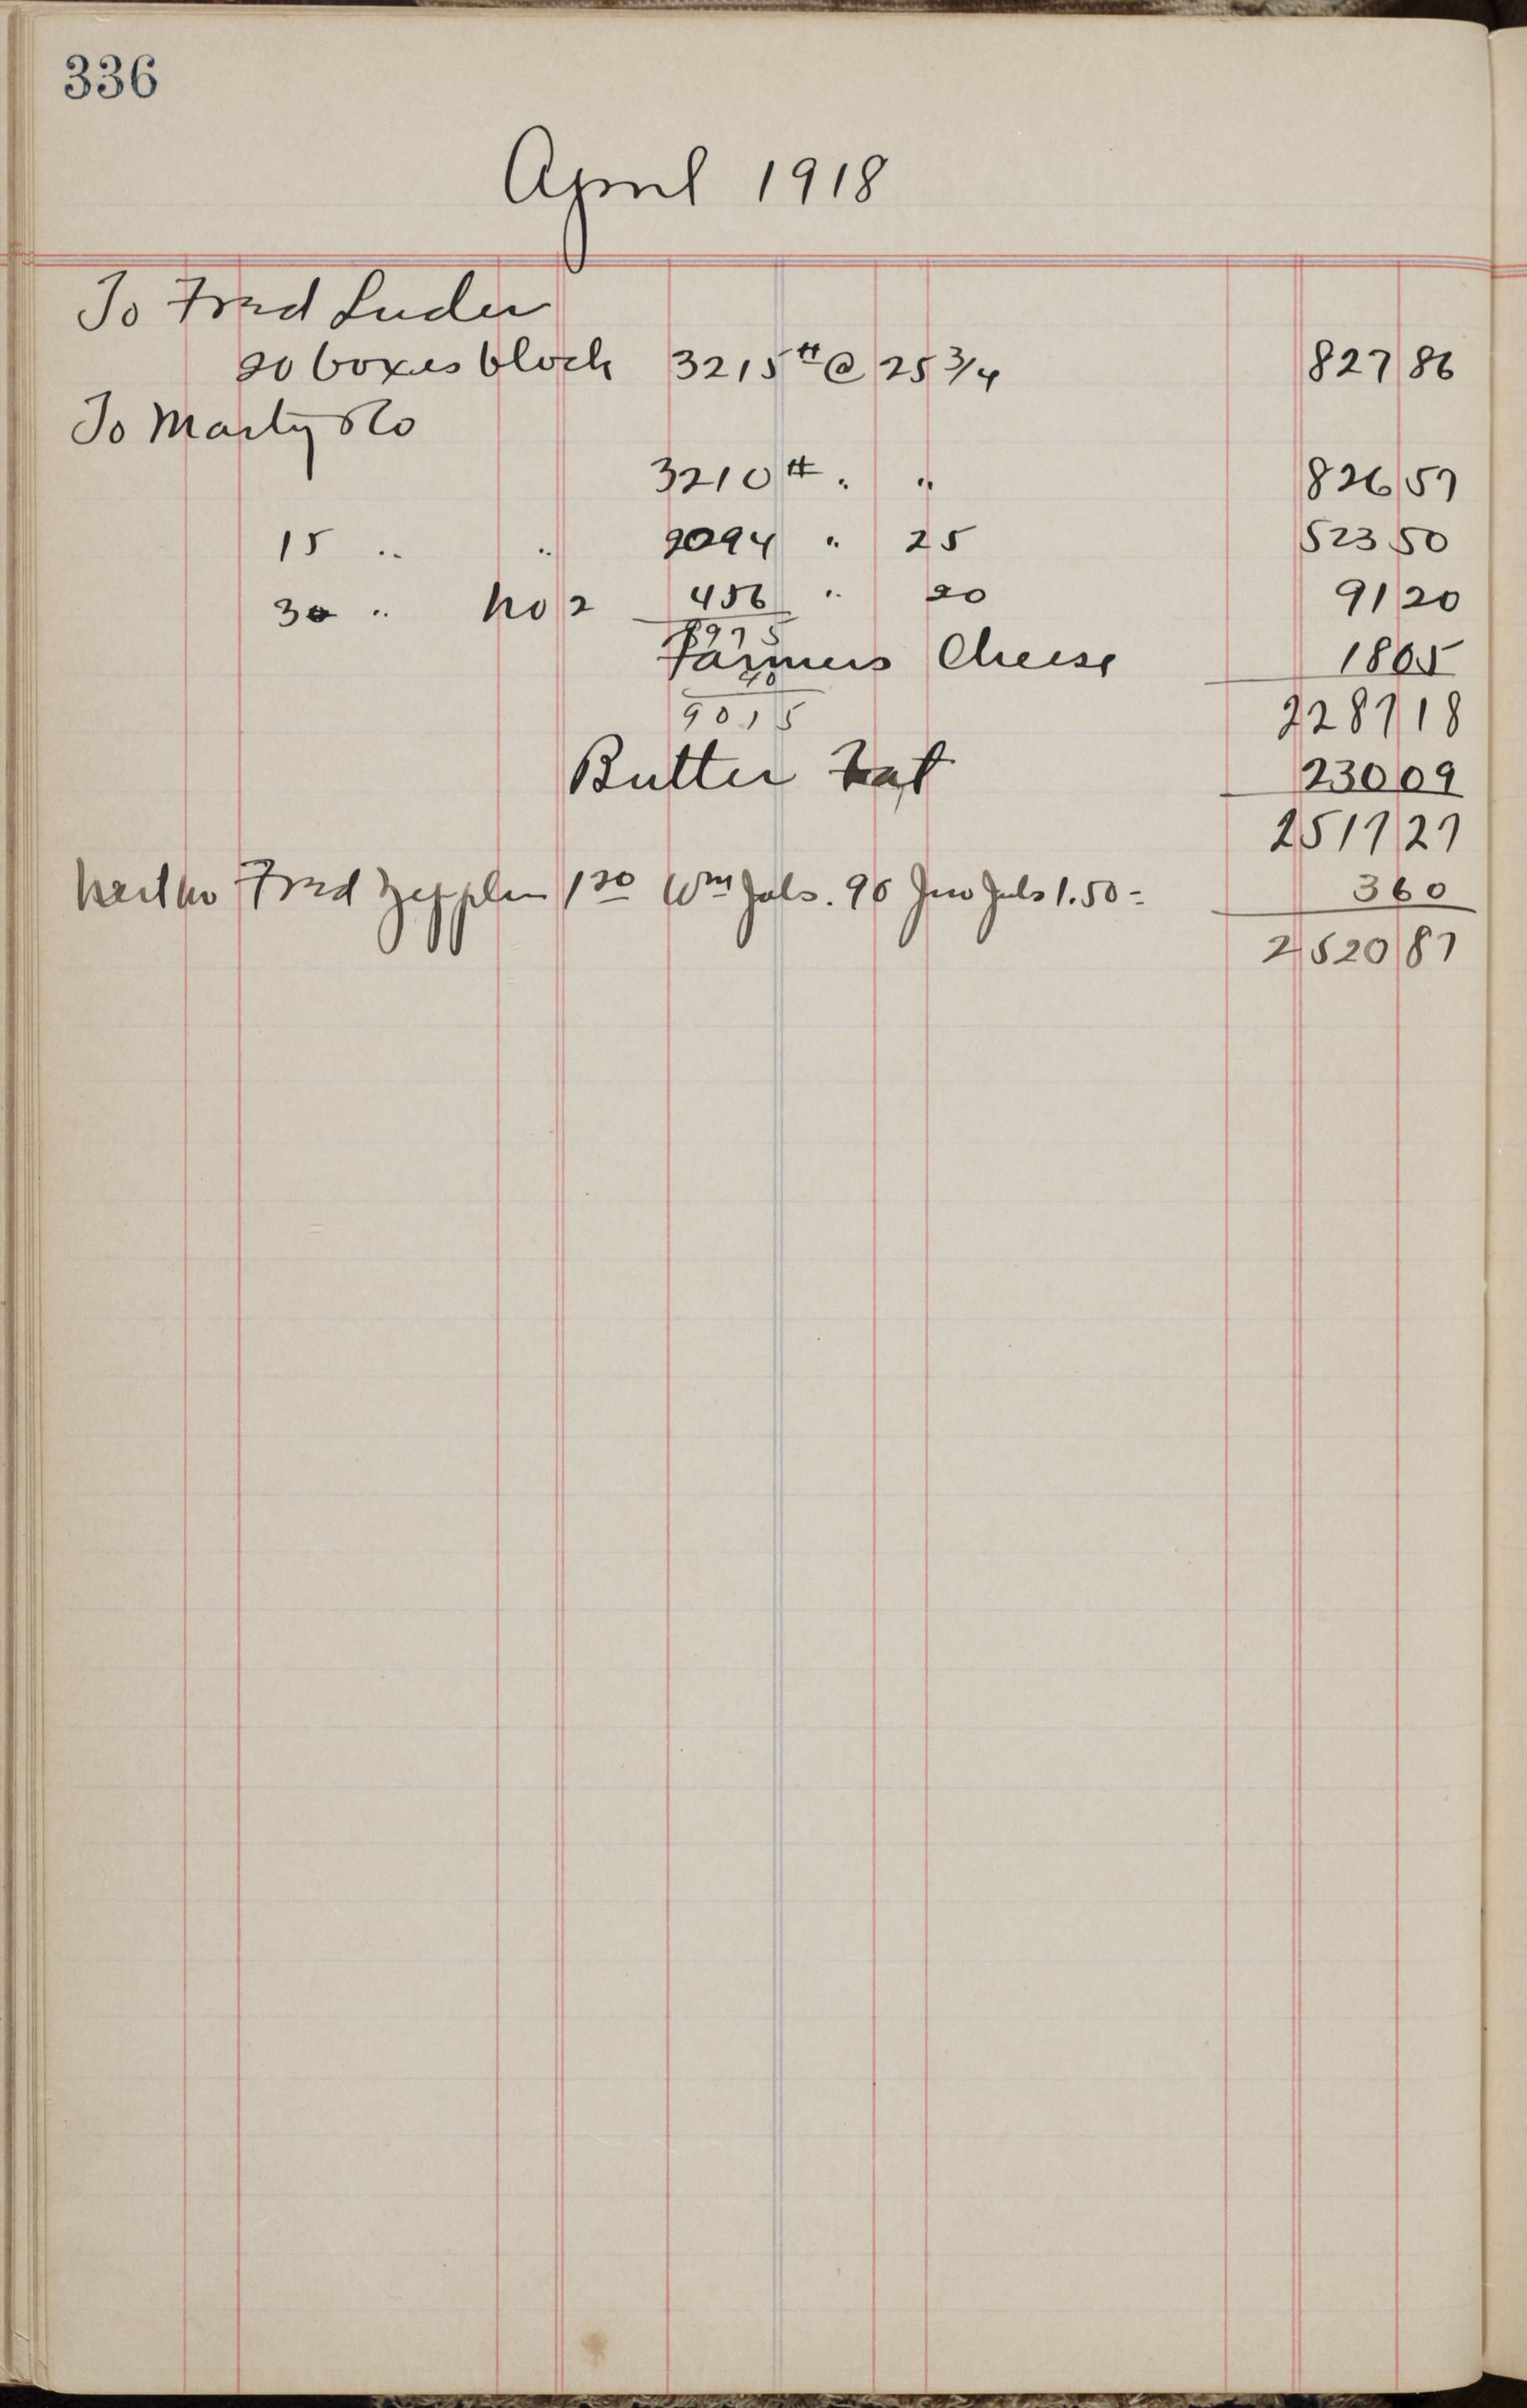 336
April 1918
To Fred Luder
20 boxes block 3215 # @ 25 3/4 827 86
To Marty & Co
3210 # " " 826 57
15 " " 2094 " 25 523 50
30 " No 2 456 " 20 91 20
8975
Farmers Cheese 18 05
40
2287 18
9015
Butter Fat 230 09
2517 27
Fred Zepplin 1 20 Wm Jals. 90 Jno Jals 1.50 = 3 60
2520 87